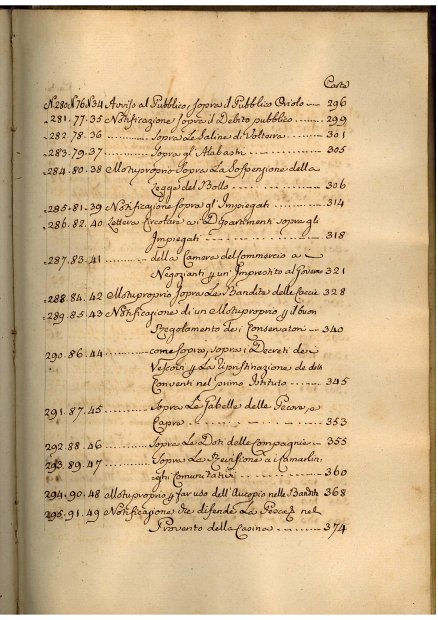 Carta
N.280.N.76.N.34 Avviso al Pubblico, sopra il Pubblico Oriolo — 296
281.77.35 Notificazione sopra il Debito pubblico 299
282.78.36 sopra Le Saline di Volterra 301
283.79.37 sopra gl'Alabastri 305
284.80.38 Motuproprio sopra La Sospenzione della
Legge del Bollo 306
285.81.39 Notificazione sopra gl'Impiegati 314
286.82.40 Lettera Circolare a i Dipartimenti sopra gli
Impiegati 318
287.83.41 della Camera del Commercio a
Negozianti p un'Imprestito al Governo 321
288.84.42 Motuproprio sopra Le Bandite delle Caccie 328
289.85.43 Notificazione di un Motuproprio p il buon
Regolamento dei Conservatori 340
290.86.44 come sopra, sopra i Decreti dei
Vescovi p La Ripristinazione de
Conventi nel primo Istituto 345
291.87.45 sopra Le Gabelle delle Pecore, e
Capre 353
292.88.46 sopra Le Doti delle Compagnie 355
293.89.47 sopra La Revisione a i Camarlin
ghi Comunitativi 360
294.90.48 Motuproprio p far uso dell'Aucupio nelle Bandite 368
295.91.49 Notificazione che difende La Pesca nel
Provento della Casina 374